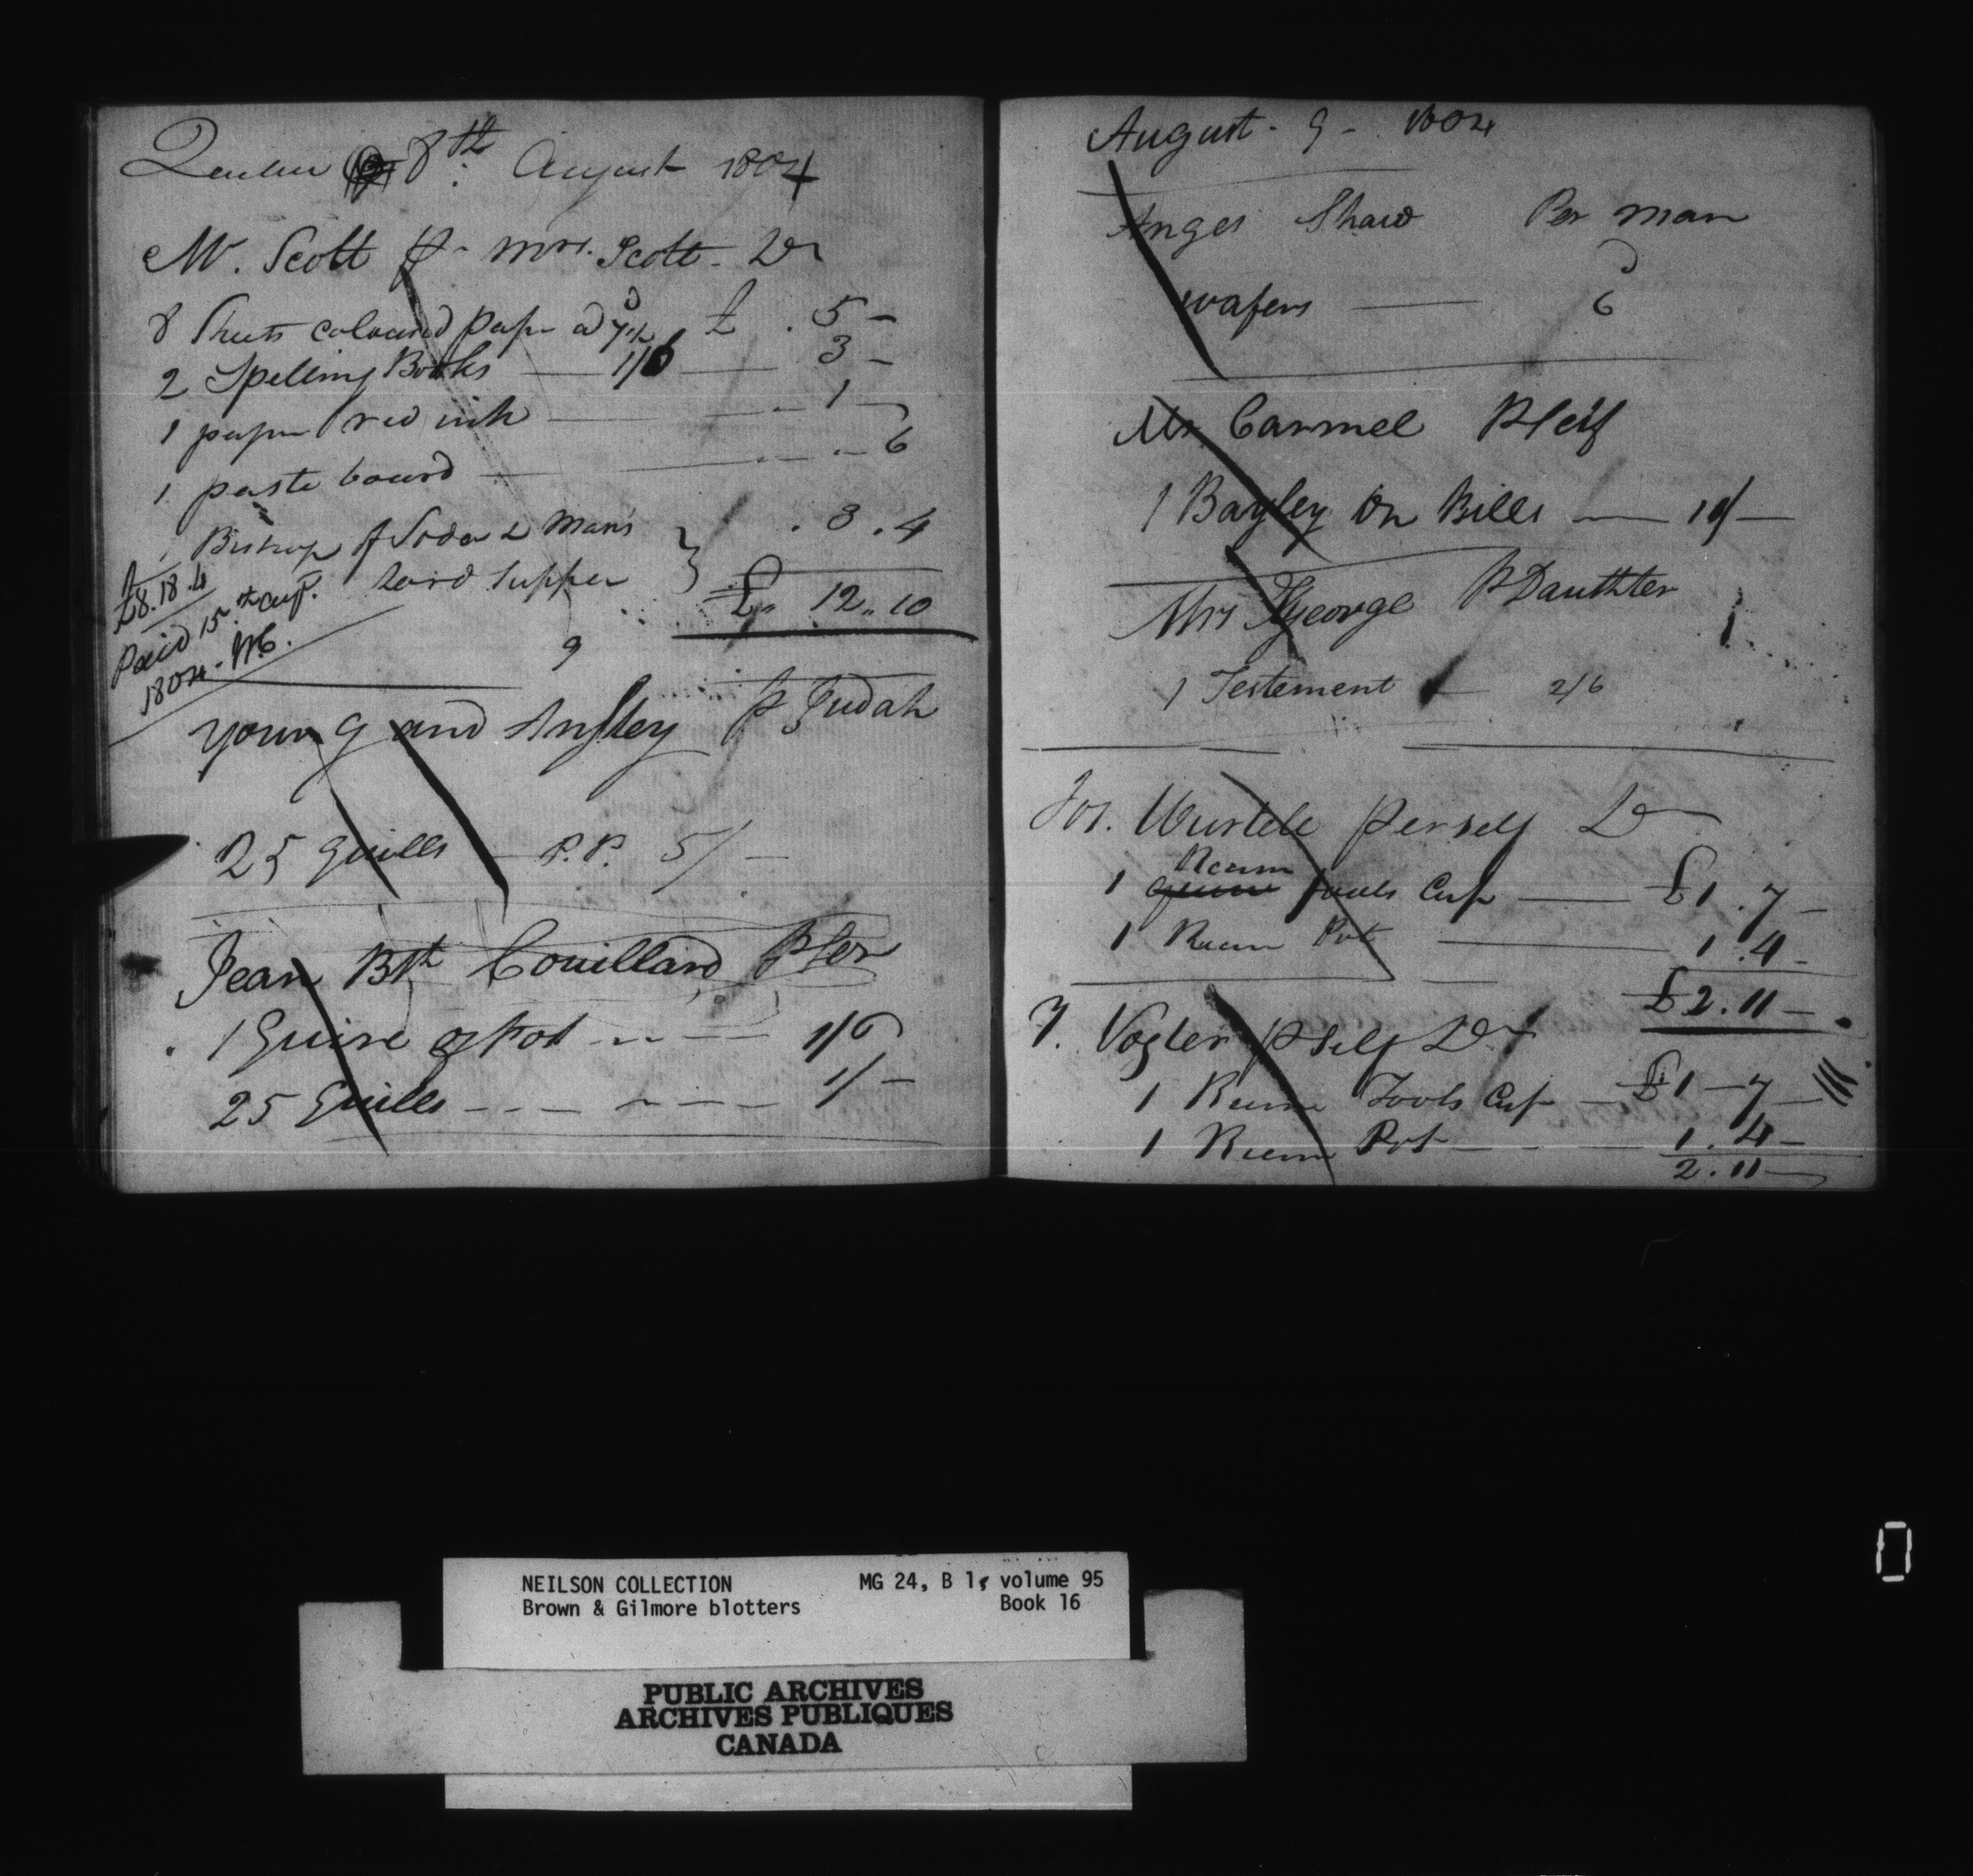 Quebec 8th August 1804
Mr. Scott P Mrs. Scott Dr
8 Sheets coloured paper a 7½d £ . 5 -
2 Spelling Books 1/6 3 -
1 paper red ink 1 -
1 paste board 6
1 Bishop of Sodor & Man's } . 3 . 4
Lord Supper
£ 12 .. 10
£8.18.4
Paid 15th Augt.
1804.
9
Young and Ansley P Judah
25 Quills P.P. 5/-
Jean Bth Couillard P Ser
1 Quire of Pot 1/6
25 Quills 1/-
August - 9 - 1804
Anges Shaw Per man
d
wafers 6
Mr Carmel P Self
1 Bayley On Bills 10/-
Mrs George P Dauthter
1 Testement 2/6
Jos. Wurtele perself Dr
Ream
1 quire fools Cap £1 . 7 -
1 Ream Pot 1 . 4 -
£2 . 11 -
Vogler P Self Dr
1 Ream Fools Cap £1 - 7 -
1 Ream Pot 1 . 4 -
2 . 11 -
NEILSON COLLECTION MG 24, B 1, volume 95
Brown & Gilmore blotters Book 16
PUBLIC ARCHIVES
ARCHIVES PUBLIQUES
CANADA